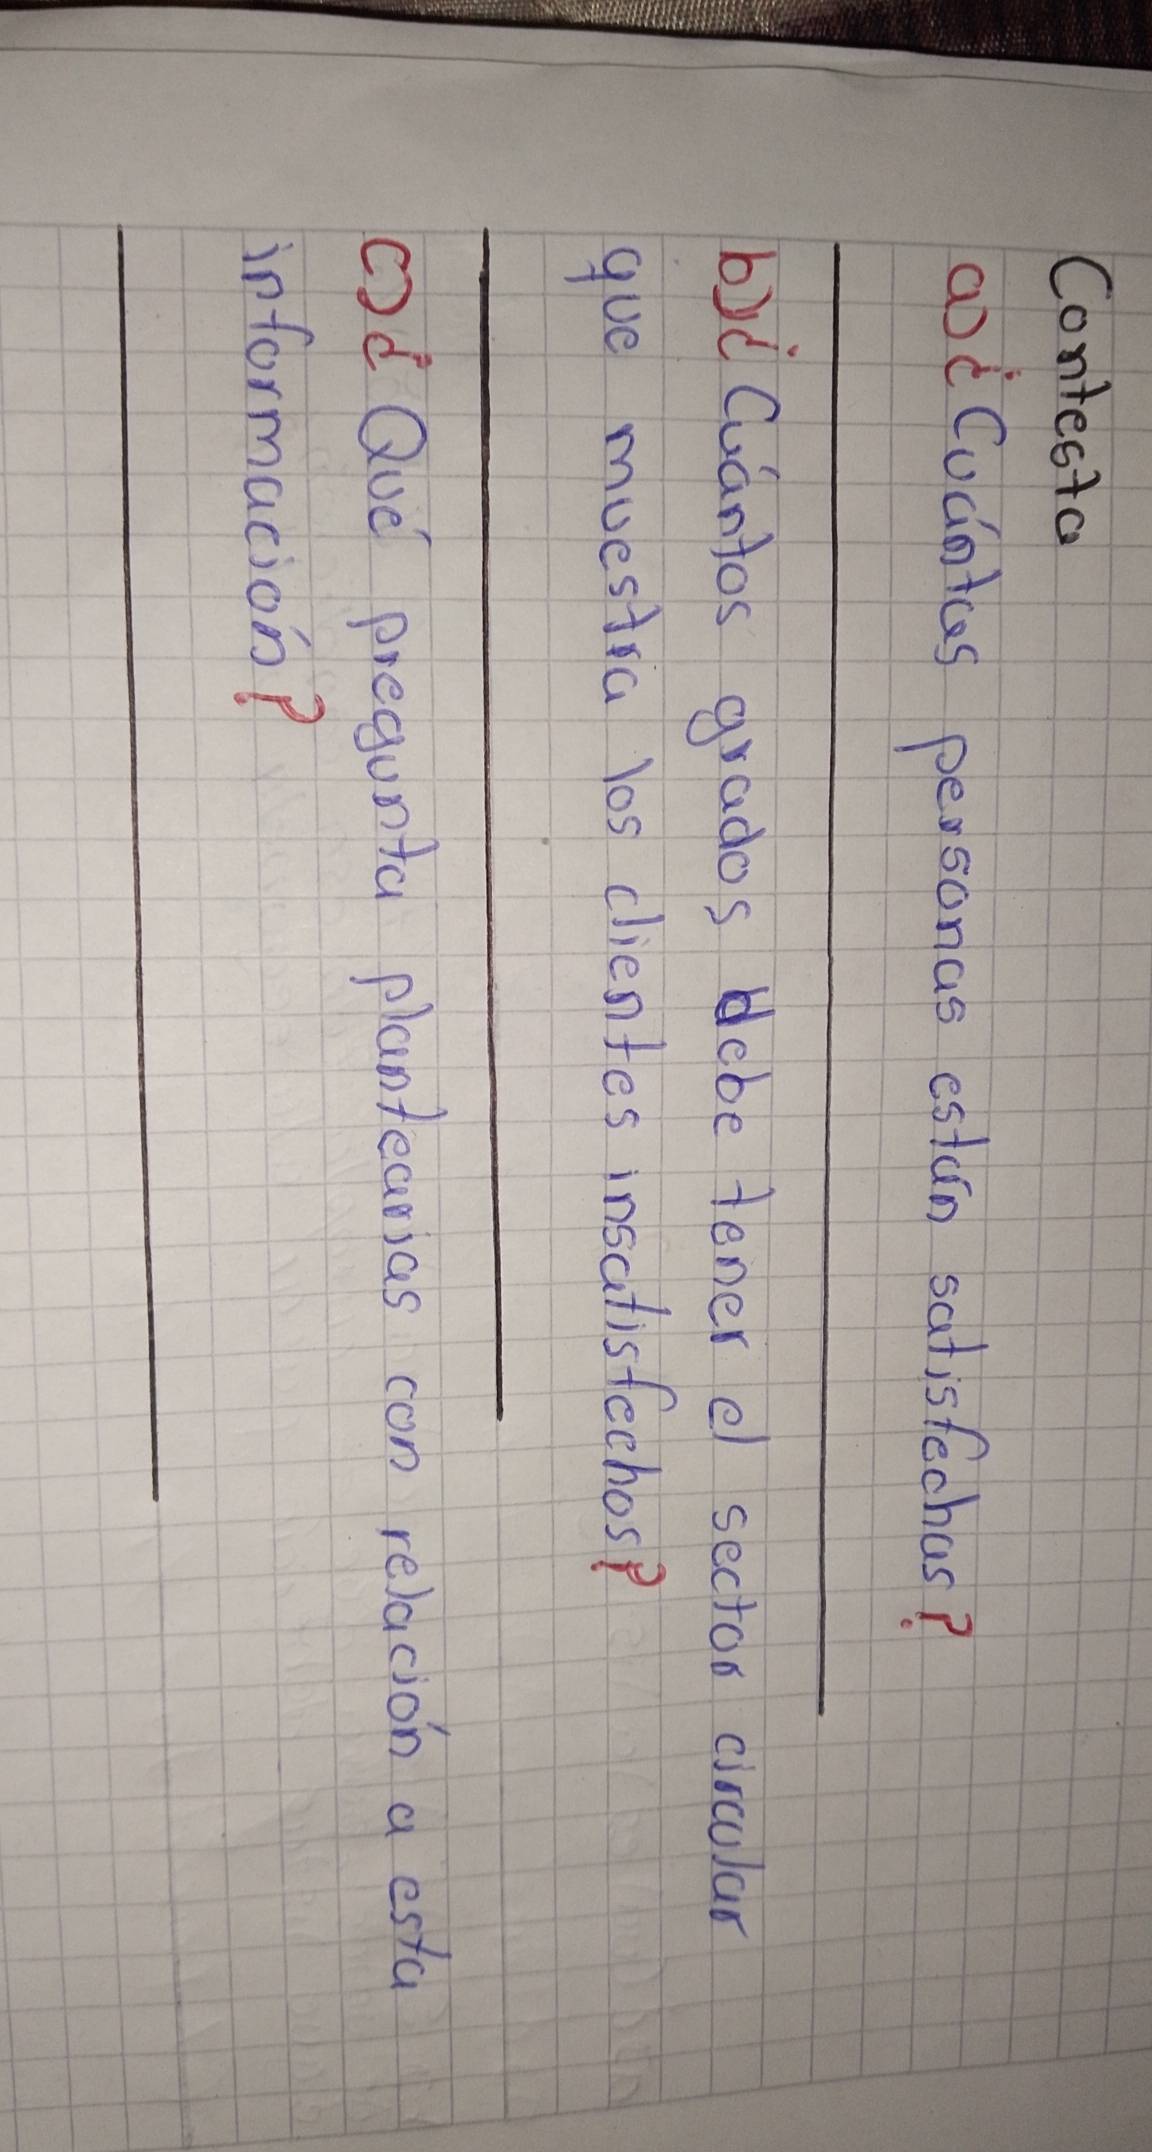 Contesta
a) ¿Cuántas personas están satisfechas?
b) ¿Cuántos grados debe tener el sector circular
que muestra los clientes insatisfechos?
c) ¿Qué pregunta plantearias con relación a esta
información?